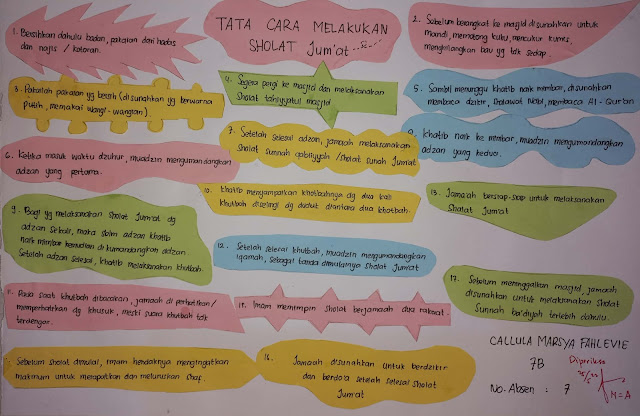 TATA CARA MELAKUKAN
SHOLAT Jum'at
1. Bersihkan dahulu badan, pakaian dari hadas
dan najis / kotoran.
2. Sebelum berangkat ke masjid disunahkan untuk
mandi, memotong kuku, mencukur kumis,
menghilangkan bau yg tdk sedap.
3. Pakailah pakaian yg bersih (disunahkan yg berwarna
putih, memakai wangi-wangian).
4. Segera pergi ke masjid dan melaksanakan
sholat tahiyyatul masjid
5. Sambil menunggu khatib naik mimbar, disunahkan
membaca dzikir, sholawat Nabi, membaca Al-Qur'an
6. Ketika masuk waktu dzuhur, muadzin mengumandangkan
adzan yang pertama.
7. Setelah selesai adzan, jamaah melaksanakan
Sholat Sunnah qobliyyah / sholat sunah Jum'at
khatib naik ke mimbar, muadzin mengumandangkan
adzan yang kedua.
9. Bagi yg melaksanakan sholat Jum'at dg
adzan sekali, maka sblm adzan khatib
naik mimbar kemudian di kumandangkan adzan.
Setelah adzan selesai, khatib melaksanakan khutbah.
10. Khatib menyampaikan khotbahnya dg dua kali
khutbah diselangi dg duduk diantara dua khotbah.
11. Pada saat khutbah dibacakan, jamaah di perhatikan /
memperhatikan dg khusuk, meski suara khutbah tdk
terdengar.
12. Setelah selesai khutbah, muadzin mengumandangkan
iqamah, sebagai tanda dimulainya sholat Jum'at
13. Jamaah bersiap-siap untuk melaksanakan
sholat Jum'at
Sebelum sholat dimulai, imam hendaknya mengingatkan
makmum untuk merapatkan dan meluruskan shaf.
Imam memimpin sholat berjamaah dua rakaat.
16. Jamaah disunahkan untuk berdzikir
dan berdo'a setelah selesai sholat
Jum'at
17. Sebelum meninggalkan masjid, jamaah
disunahkan untuk melaksanakan sholat
Sunnah ba'diyah terlebih dahulu.
CALLULA MARSYA FAHLEVIE
7B
No. Absen : 7
Diperiksa
M = A